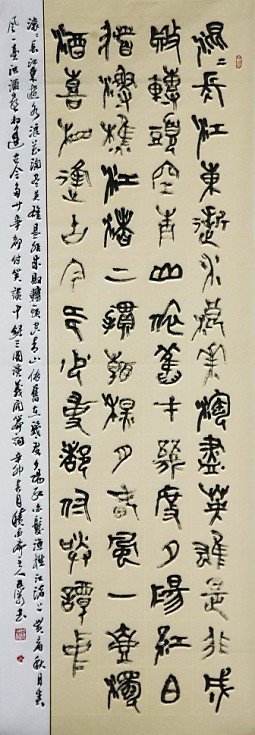 滾〻長江東逝水浪花淘盡英雄是非成
敗轉頭空青山依舊在幾度夕陽紅白
髮漁樵江渚上慣看秋月春風一壺濁
酒喜相逢古今多少事都付笑談中
滾〻長江東逝水浪花淘盡英雄是非成敗轉頭空青山依舊在幾度夕陽紅白髮漁樵江渚上慣看秋月春
風一壺濁酒喜相逢古今多少事都付笑談中錄三國演義開篇詞辛卯吉月齋主人書